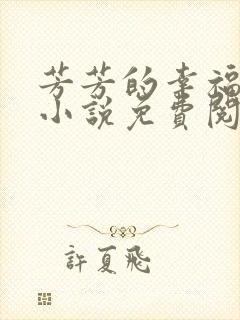 芳芳的幸福
小說免費閱
許夏飛